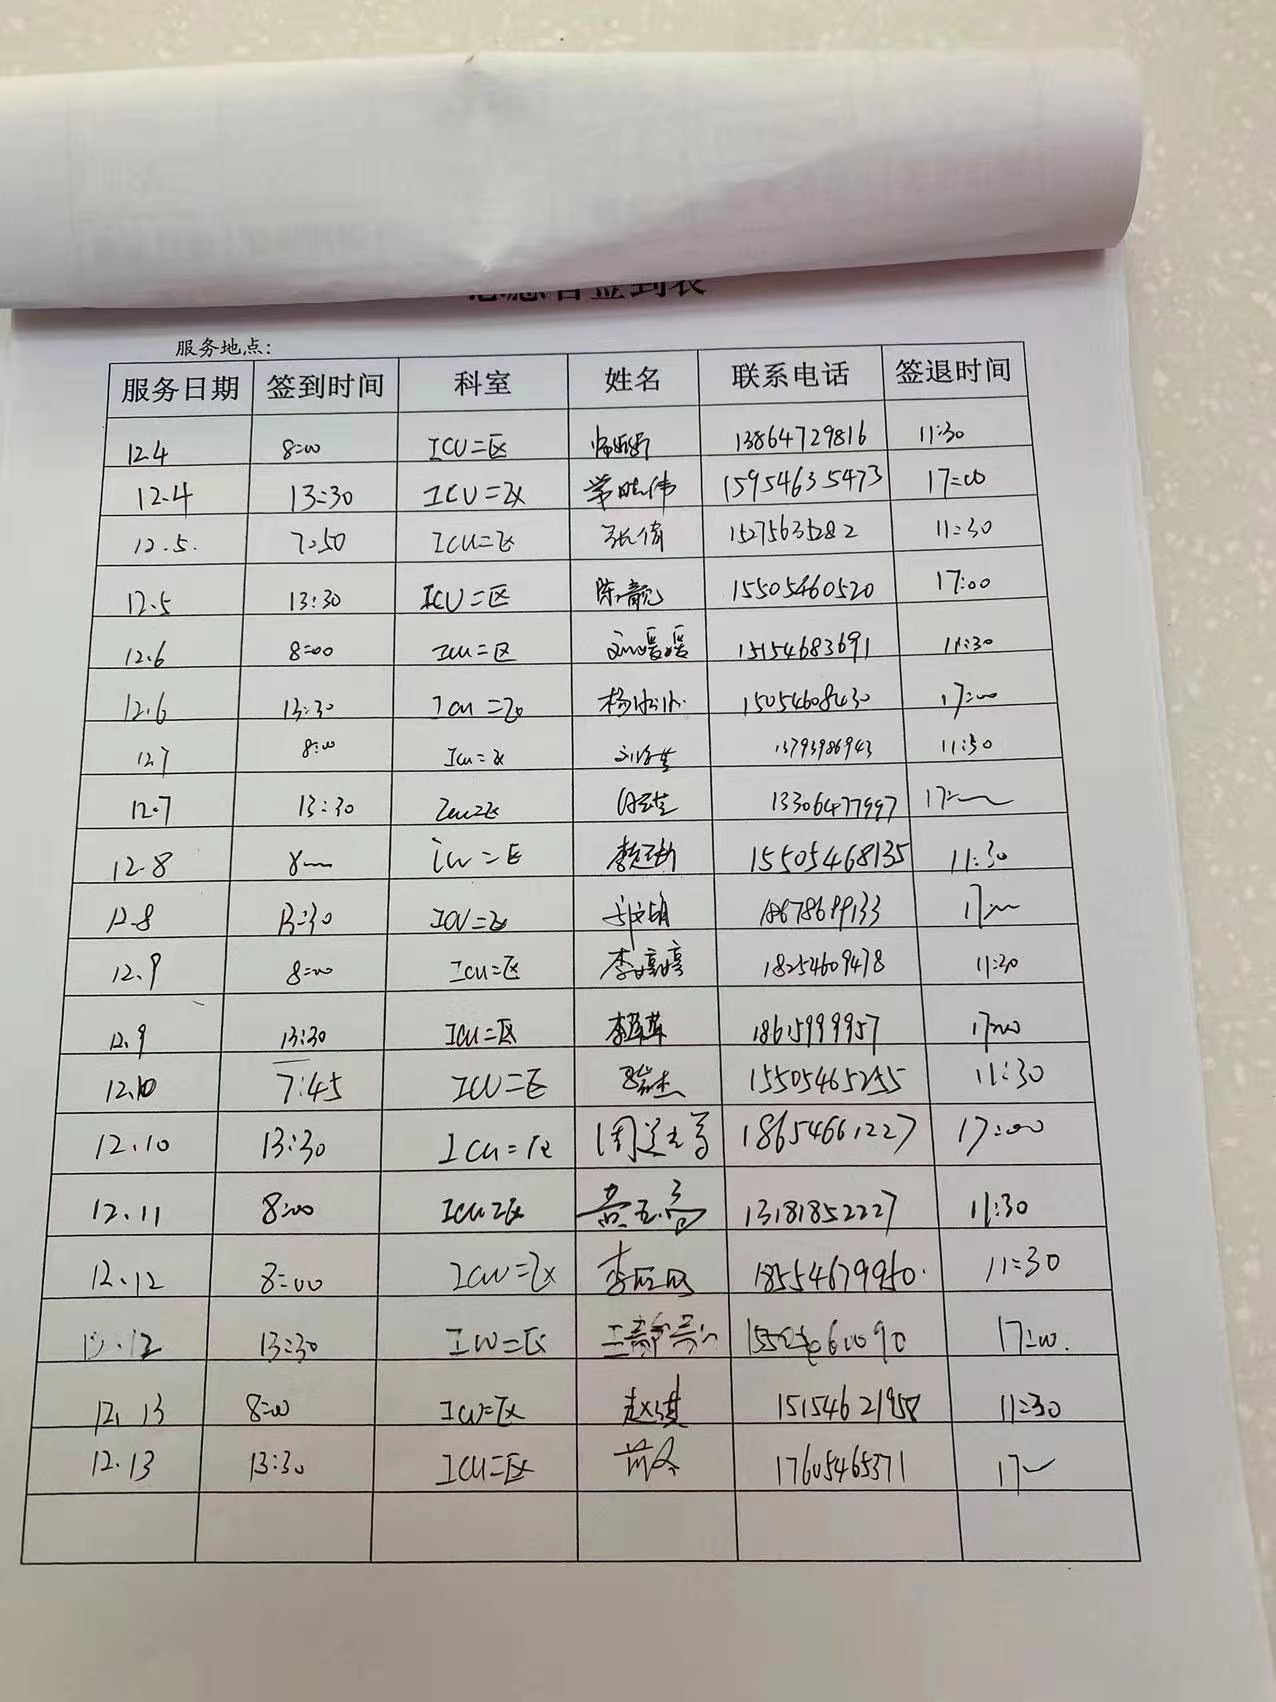 志愿者签到表
服务地点:
服务日期 签到时间 科室 姓名 联系电话 签退时间
12.4 8:00 ICU二区 13864729816 11:30
12.4 13:30 ICU二区 常晓伟 15954635473 17:00
12.5. 7:50 ICU二区 张倩 15275635282 11:30
12.5 13:30 ICU二区 陈靓 15505460520 17:00
12.6 8:00 ICU二区 刘媛媛 15154683691 11:30
12.6 13:30 ICU二区 15054608430 17:00
12.7 8:00 ICU二区 13793986943 11:30
12.7 13:30 ICU二区 13306477997 17:
12.8 8 ICU二区 15505468135 11:30
12.8 13:30 ICU二区 18678699133 17
12.9 8:00 ICU二区 李婷婷 18254609478 11:30
12.9 13:30 ICU二区 李苹苹 18615999957 17:00
12.10 7:45 ICU二区 15505465255 11:30
12.10 13:30 ICU二区 18654661227 17:00
12.11 8:00 ICU二区 13181852227 11:30
12.12 8:00 ICU二区 18554679950. 11:30
12.12 13:30 ICU二区 17:00.
12.13 8:00 ICU二区 赵琪 15154621958 11:30
12.13 13:30 ICU二区 17605465371 17